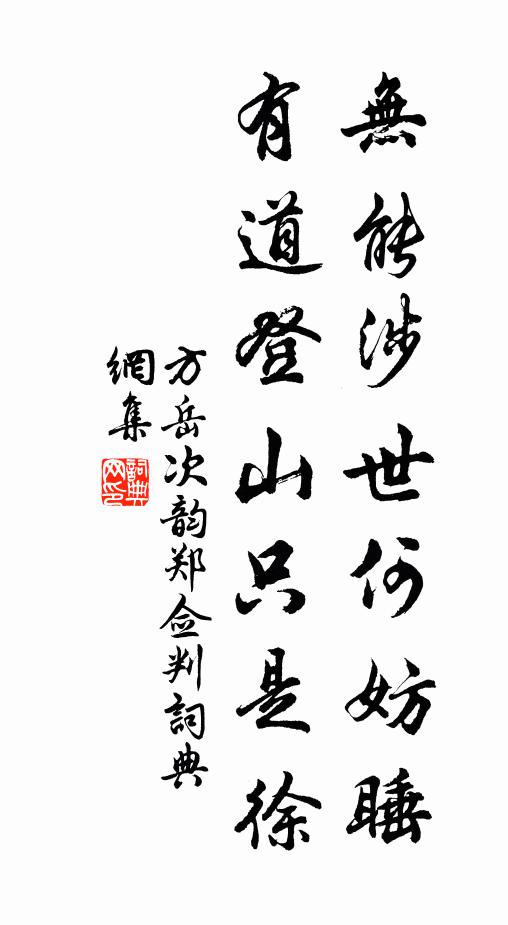 無能涉世何妨睡
有道登山只是徐
方岳次韵郑佥判詞典
網集
詞典网印